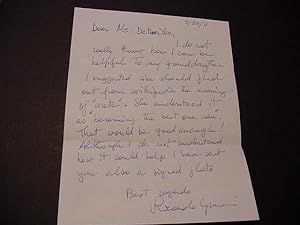 Dear Ms Detweiler,
I do not
really know how I can be
helpful to my granddaughter
I suggested she should find
out from wikipedia the meaning
of "arete". She understood it
as "becoming the best one can".
That would be good enough!
Although I do not understand
how it could help I have sent
you also a signed photo
Best regards
Riccardo